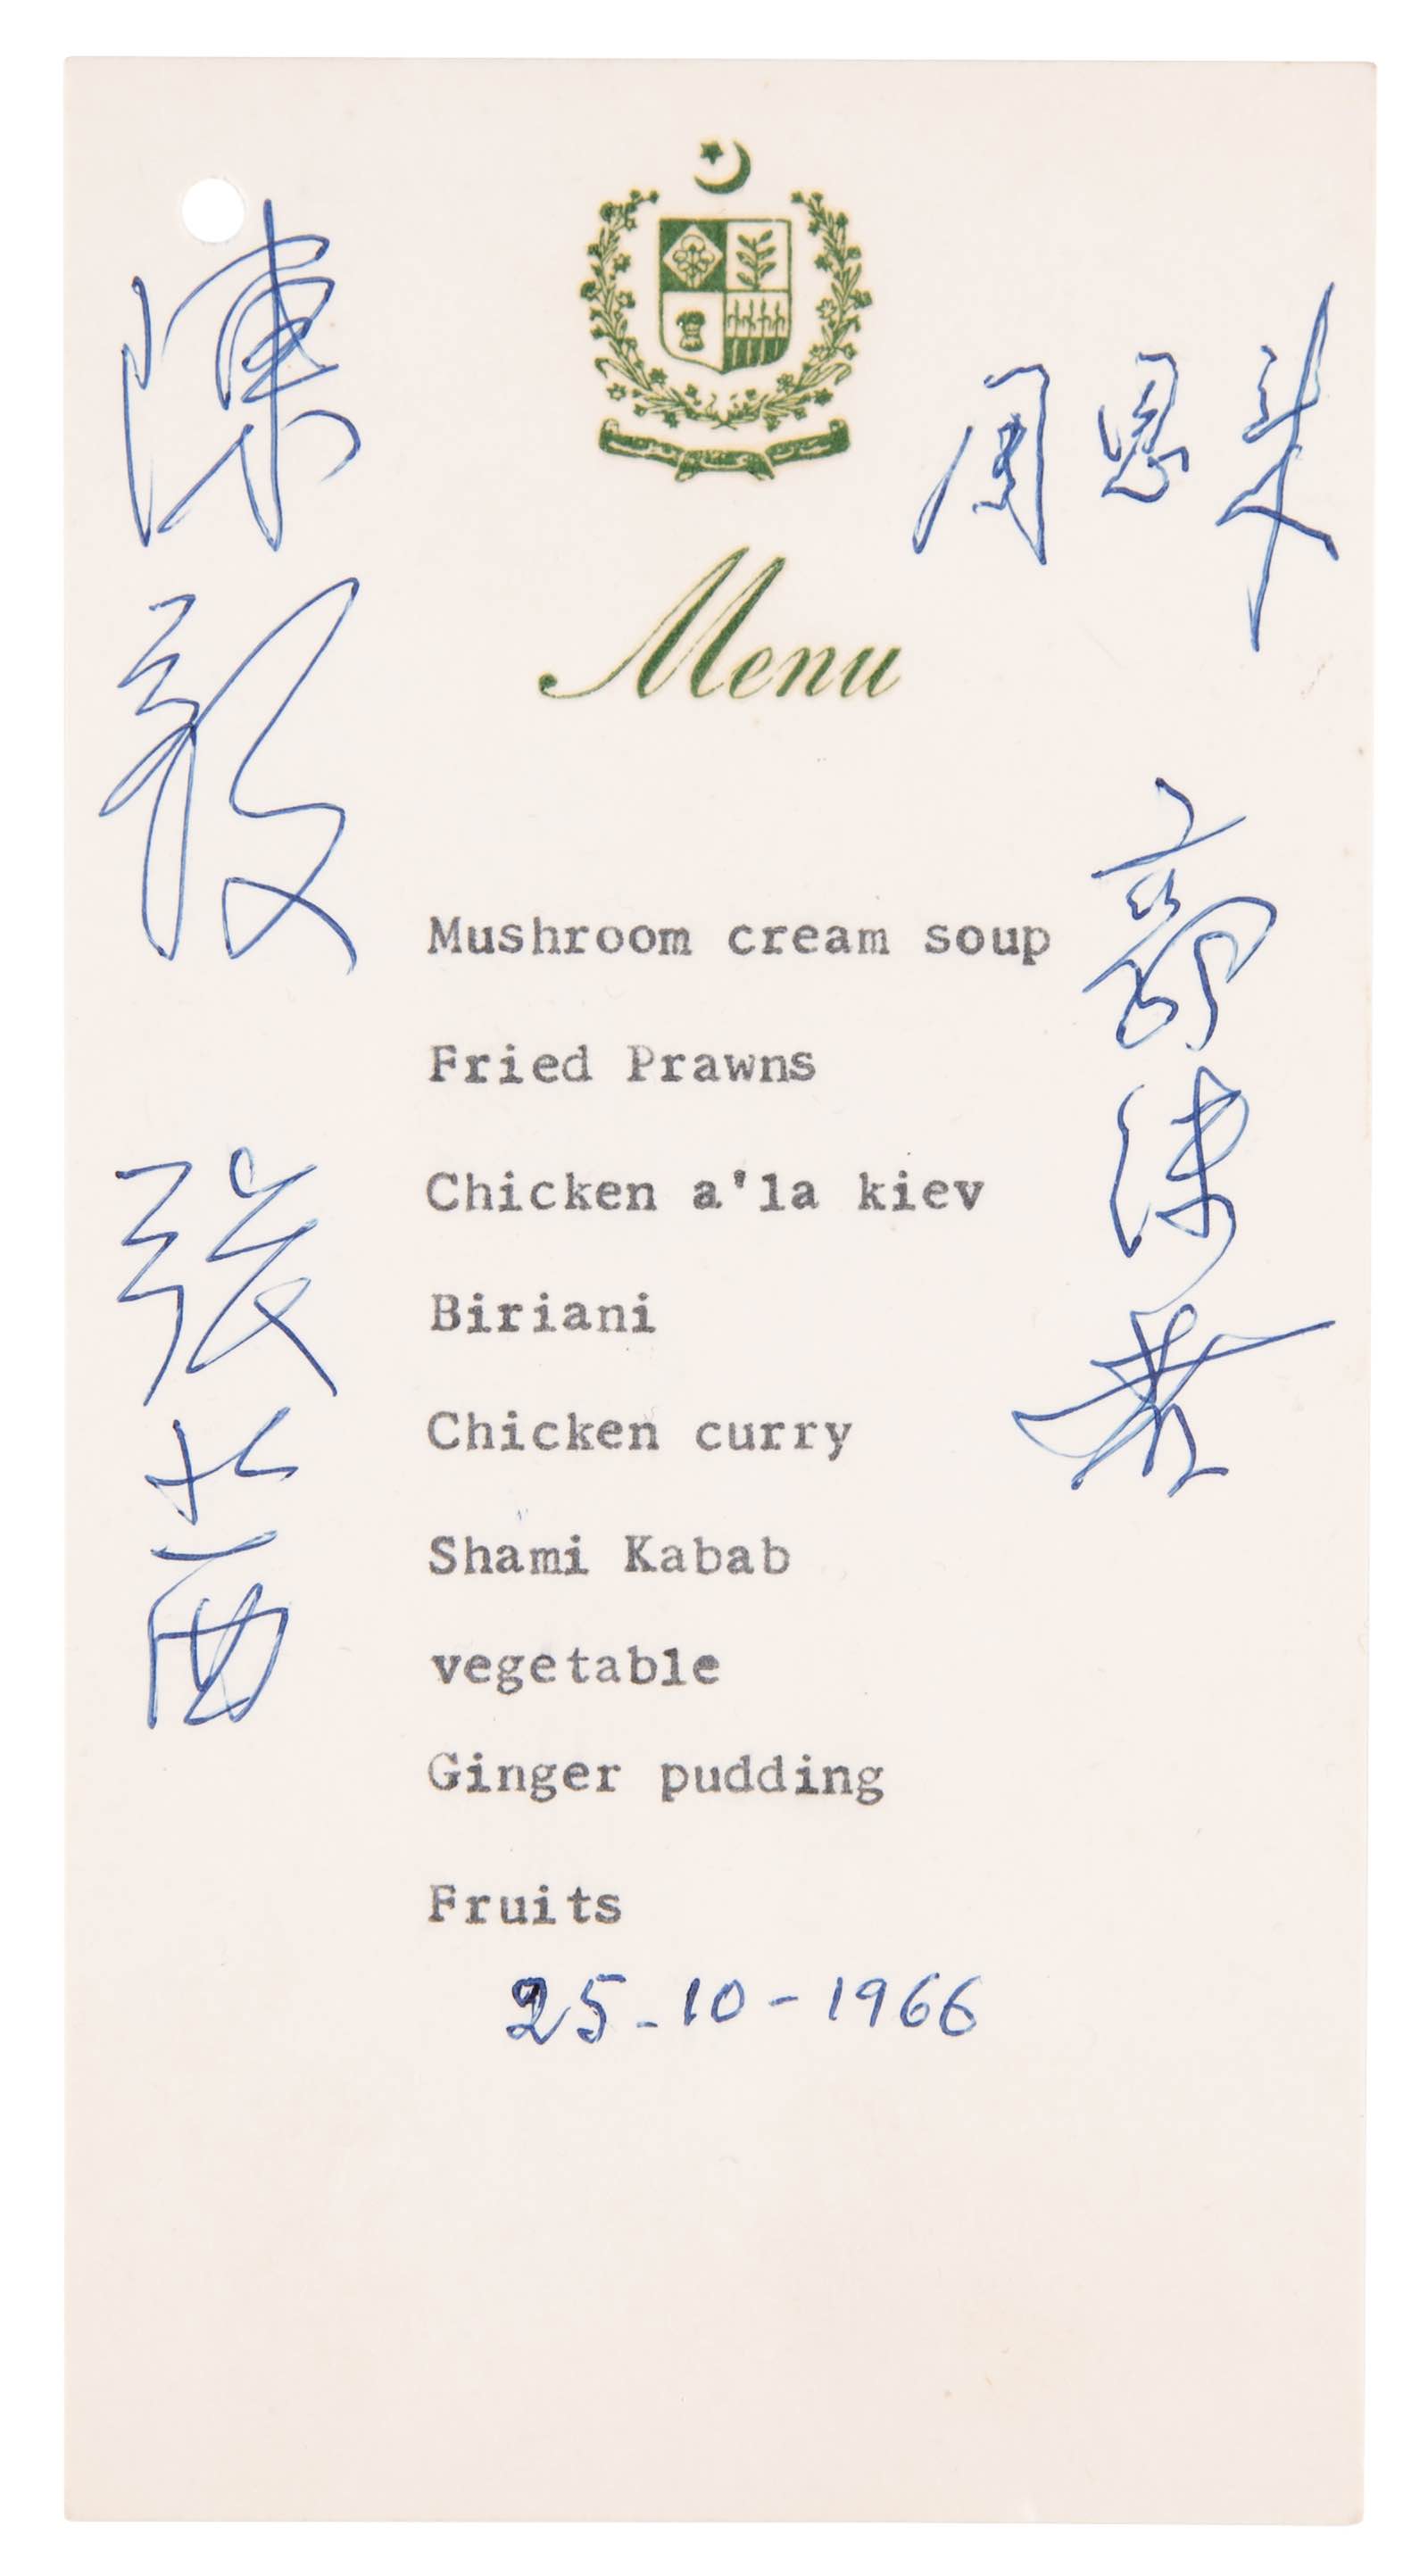 周恩来
陳毅
Menu
Mushroom cream soup
Fried Prawns
Chicken a'la kiev
Biriani
Chicken curry
Shami Kabab
vegetable
Ginger pudding
Fruits
25-10-1966